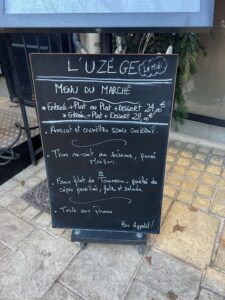 L'UZÈGE Le Midi
MENU DU MARCHÉ
* Entrée + Plat ou Plat + Dessert 24,00€
* Entrée + Plat + Dessert 28,00€
• Avocat et crevettes sauce cocktail.
• Thon mi-cuit au sésame, purée
maison.
ou
• Faux filet de Taureau, poêlée de
cèpes persillés, frites et salade
• Tarte aux Prunes.
Bon Appétit!